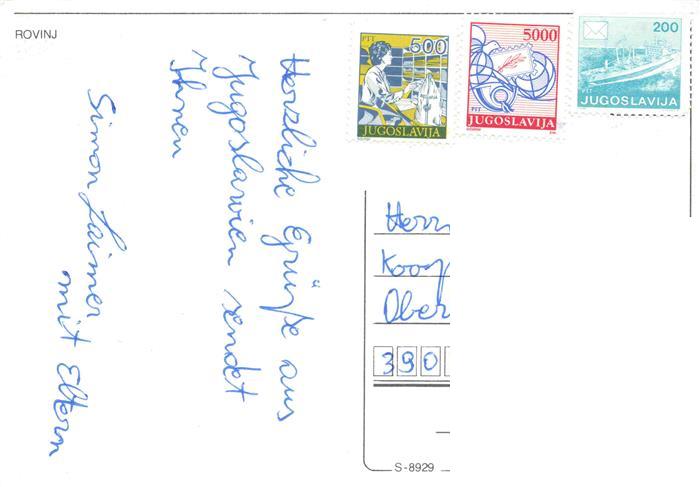 ROVINJ
PTT
500
JUGOSLAVIJA
5000
PTT
JUGOSLAVIJA
200
PTT
JUGOSLAVIJA
Herzliche Egrüße aus
Jugoslawien sendet
Ihnen
Simon Laimer
mit Eltern
Herr
Koop
Ober
390
S-8929